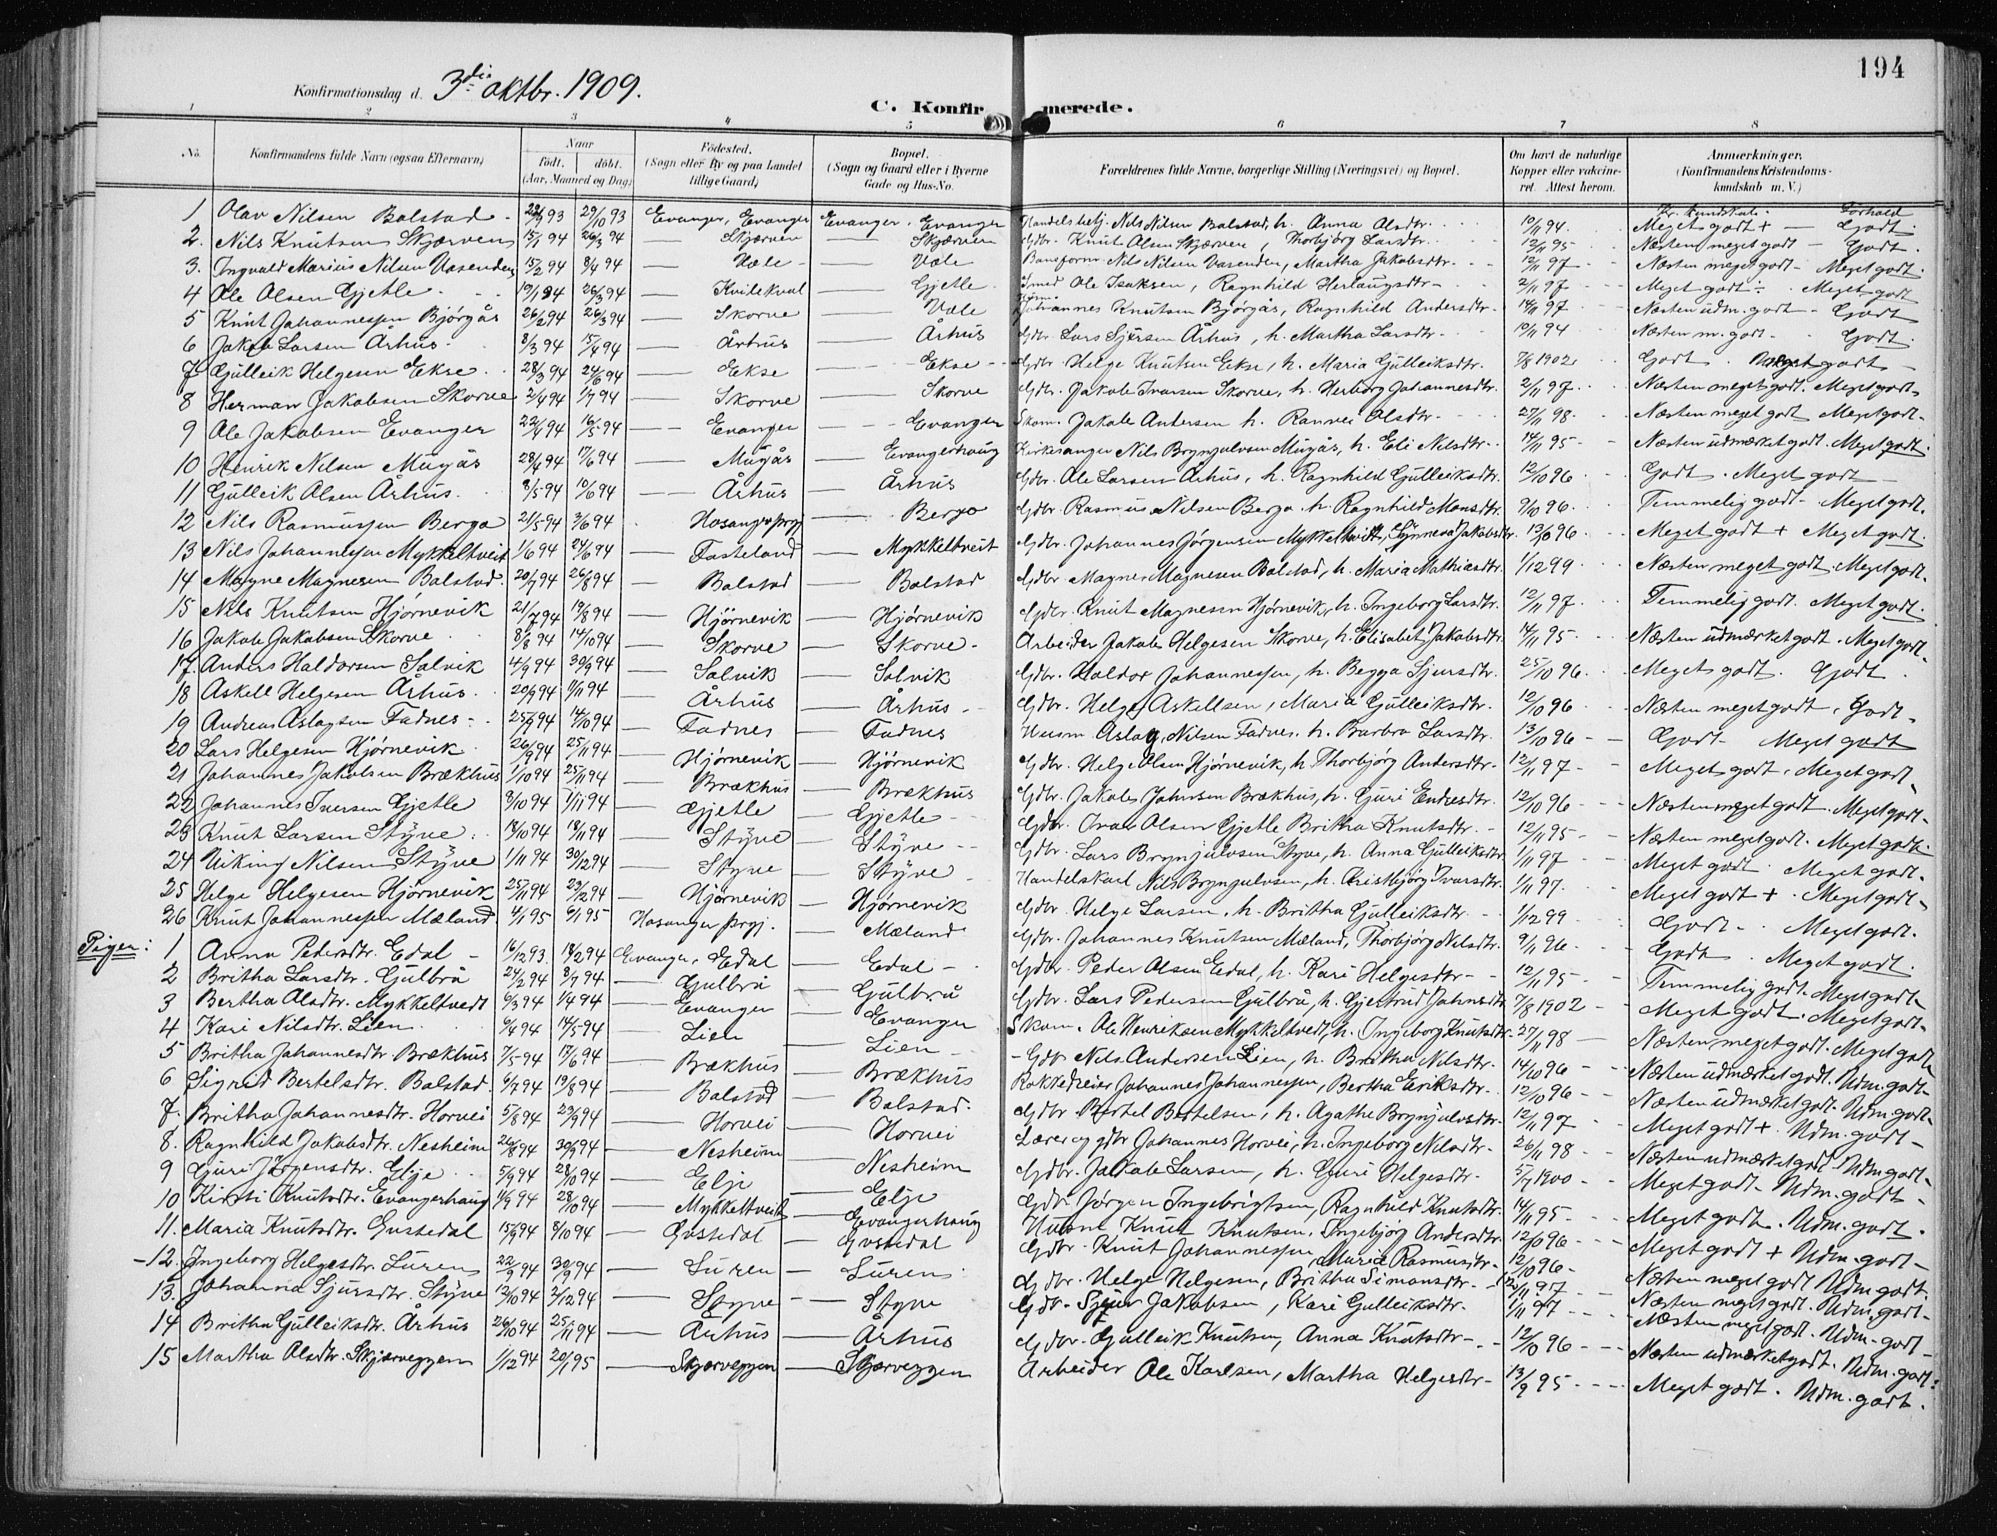 194
Konfirmationsdag d. 3die oktbr. 1909.
C. Konfirmerede.
1 2 3 4 5 6 7 8
No. Konfirmandens fulde Navn (ogsaa Efternavn) Naar født. døbt. (Aar, Maaned og Dag) Fødested. (Sogn eller By og paa Landet tillige Gaard) Bopæl. (Sogn og Gaard eller i Byerne Gade og Hus-No. Forældrenes fulde Navne, borgerlige Stilling (Næringsvei) og Bopæl. Om havt de naturlige Kopper eller vakcineret. Attest herom. Anmærkninger. (Konfirmandens Kristendomskundskab m. V.)
Kr. kundskab. Forhold
1 Olav Nilsen Bolstad 29/10 93 Evanger, Evanger Evanger, Evanger Handelsbetj. Nils Nilsen Bolstad, h. Anna Olsdtr. 10/11 94. Meget godt + Godt
2. Nils Knutsen Skjærven 15/1 94 26/3 94 Skjærven Skjærven Gdbr. Knut Olsen Skjærven, Thorbjörg Larsdtr. 12/11 95 Næsten meget godt Godt
3. Ingvald Marius Nilsen Vasenden 15/2 94 8/4 94 Væle Væle Banform. Nils Nilsen Vasenden, Martha Jakobsdtr. 12/11 97 Næsten meget godt Meget godt
4 Ole Olsen Gjetle 26/3 94 Kvilekval Gjetle Smed Ole Isaksen, Ragnhild Herlaugsdtr 2/11 97 Meget godt ÷ Meget godt
5 Knut Johannessen Bjørgås 26/2 94 26/3 94 Skorve Væle Johannes Knutsen Bjørgås, Ragnhild Andersdtr. 14/11 97 Næsten üdm. godt Godt
6 Jakob Larsen Århus 8/3 94 15/4 94 Århus Århus Gdbr. Lars Sjursen Århus, h. Martha Larsdtr. 10/11 94 Næsten m. godt Godt.
7 Gulleik Helgesen Ekse 28/3 94 24/6 94 Ekse Ekse Gdbr. Helge Knutsen Ekse, h. Maria Gulleiksdtr. 7/8 1902 Godt. Meget godt
8 Herman Jakobsen Skorve 2/4 94 1/7 94 Skorve Skorve Gdbr. Jakob Ivarsen Skorve, h. Herborg Johannesdtr. 2/11 97 Næsten meget godt. Meget godt.
9 Ole Jakobsen Evanger 22/4 94 16/5 94 Evanger Evanger Skom. Jakob Andersen h. Rannei Olsdtr. 27/11 98 Næsten meget godt Meget godt.
10 Henrik Nilsen Mugås 28/4 94 17/6 94 Mugås Evangerhaug Kirkesanger Nils Brynjulvsen Mugås, h. Eli Nilsdtr. 14/11 95 Næsten üdmærket godt. Meget godt.
11 Gulleik Olsen Århus 8/5 94 10/6 94 Århus Århus Gdbr. Ole Larsen Århus, h. Ragnhild Gulleiksdtr. 12/10 96 Godt. Meget godt
12 Nils Rasmussen Bergo 21/5 94 3/6 94 Hosanger prgj Bergo Gdbr. Rasmus Nilsen Bergo h. Ragnhild Monsdtr. 9/10 96. Temmelig godt. Meget godt.
13 Nils Johannessen Mykkeltveit 1/6 94 24/6 94 Fasteland Mykkeltveit Gdbr. Johannes Jørgensen Mykkeltvedt, Synneva Jakobsdtr. 13/10 96 Meget godt + Meget godt.
14 Magne Magnesen Bolstad 20/7 94 26/8 94 Bolstad Bolstad Gdbr. Magnes Magnesen Bolstad, h. Maria Mathiasdtr. 1/12 99 Næsten meget godt. Meget godt.
15 Nils Knutsen Hjørnevik 21/7 94 19/8 94 Hjørnevik Hjørnevik Gdbr. Knut Magnesen Hjørnevik, h. Ingeborg Larsdtr. 12/11 97. Temmelig godt. Meget godt.
16 Jakob Jakobsen Skorve 8/8 94 14/10 94 Skorve Skorve Arbeider Jakob Helgesen Skorve, h. Elisabet Jakobsdtr 14/11 95 Næsten üdmærket godt. Meget godt.
17 Anders Haldorsen Solvik 4/9 94 30/9 94 Solvik Solvik Gdbr. Haldor Johannessen, h. Begga Sjursdtr. 25/10 96. Meget godt. Godt.
18 Askell Helgesen Århus 20/9 94 11/11 94 Århus Århus Gdbr. Helge Askellsen, Maria Gulleiksdtr. 12/10 96 Næsten meget godt. Godt.
19 Andreas Aslagsen Fadnes 25/9 94 14/10 94 Fadnes Fadnes Husm Aslag Nilsen Fadnes. h. Barbro Larsdtr. 13/10 96 Godt Meget godt
20 Lars Helgesen Hjørnevik 26/9 94 25/11 94 Hjørnevik Hjørnevik Gdbr. Helge Olsen Hjørnevik, h Thorbjörg Andersdtr. 12/11 97 Meget godt. Meget godt.
21 Johannes Jakobsen Brækhus 1/10 94 25/11 94 Brækhus Brækhus Gdbr. Jakob Johnsen Brækhus, h. Guri Endresdtr. 12/10 96 Næsten meget godt. Meget godt.
22 Johannes Iversen Gjetle 8/10 94 1/11 94 Gjetle Gjetle Gdbr. Ivar Olsen Gjetle Britha Knutsdtr. 12/11 95 Næsten meget godt. Meget godt.
23 Knut Larsen Styve 18/10 94 18/11 94 Styve Styve Gdbr. Lars Brynjulvsen Styve, h. Anna Gulleiksdtr 1/11 97 Meget godt Meget godt.
24 Viking Nilsen Styve 1/11 94 30/12 94 Styve Styve Handelskarl Nils Brynjulvsen, h. Kristbjörg Ivarsdtr. 1/11 97. Meget godt + Meget godt.
25 Helge Helgesen Hjørnevik 25/11 94 23/12 94 Hjørnevik Hjørnevik Gdbr. Helge Larsen, h. Britha Gulleiksdtr 1/12 99 Godt Meget godt.
26 Knut Johannessen Mæland 4/1 95 6/1 95 Hosanger prgj. Mæland Gdbr. Johannes Knutsen Mæland, Thorbjörg Nilsdtr. 9/11 96 Godt. Meget godt.
Piger:
1 Anna Pedersdtr. Edal 16/12 93. 18/2 94 Evanger, Edal Edal Gdbr. Peder Olsen Edal, h. Kari Helgesdtr 12/11 95 Temmelig godt. Meget godt.
2 Britha Larsdtr. Gulbrå 24/2 94 8/9 94 Gulbrå Gulbrå Gdbr. Lars Pedersen Gulbrå, h. Gjertrud Johnsdtr 7/8 1902 Meget godt. Meget godt.
3 Bertha Olsdtr. Mykkeltvedt 6/3 94 1/4 94 Evanger Evanger Skom. Ole Henriksen Mykkeltvedt, h. Ingeborg Knutsdtr. 27/11 98 Næsten meget godt. Meget godt.
4 Kari Nilsdtr. Lien 6/4 94 14/5 94 Lien Lien Gdbr Nils Andersen Lien, h. Britha Nilsdtr. 14/10 96 Næsten üdmærket godt. Üdm. godt.
5 Britha Johannesdtr. Brækhus 7/5 94 17/6 94 Brækhus Brækhus Rokkedreier Johannes Johannessen, Bertha Eriksdtr. 12/10 96 Næsten üdmærket godt. Udm. godt.
6 Sigrid Bertelsdtr. Bolstad. 9/7 94 19/8 94 Bolstad Bolstad. Gdbr Bertel Bertelsen, h. Agathe Brynjulvsdtr. 12/11 97 Meget godt + Udm. godt
7. Britha Johannesdtr. Horvei 5/8 94 23/9 94 Horvei Horvei Lærer og gdbr Johannes Horvei, h. Ingeborg Nilsdtr. 26/11 98 Næsten udmærket godt Udm. godt.
8. Ragnhild Jakobsdtr. Nesheim 26/8 94 30/9 94 Nesheim Nesheim Gdbr. Jakob Larsen, h. Guri Helgesdtr. 5/7 1900 Meget godt. Udm. godt
9 Guri Jørgensdtr. Elje 5/9 94 28/10 94 Elje Elje Gdbr Jørgen Ingebrigtsen, Ragnhild Knutsdtr. 14/11 95 Meget godt. Udm. godt.
10 Kirsti Knutsdtr. Evangerhaug 1/9 94 28/10 94 Mykkeltveit Evangerhaug Husm Knut Knutsen, Ingebjör Andersdtr. 12/10 96 Meget godt + Udm. godt.
11. Maria Knutsdtr. Evstedal 15/9 94 8/10 94 Evstedal Evstedal Gdbr. Knut Johannessen, Maria Rasmusdtr. 12/10 96 Næsten meget godt Udm. godt.
12. Ingeborg Helgesdtr. Lurens 22/9 94 30/9 94 Luren Lurens Gdbr. Helge Helgesen, Britha Simonsdtr 12/11 97 Næsten meget godt. Udm. godt.
13. Johanna Sjursdtr. Styve 12/10 94 2/12 94 Styve Styve Gdbr. Sjur Jakobsen, Kari Gulleiksdtr. 1/11 97 Næsten meget godt. Udm. godt
14 Britha Gulleiksdtr. Århus 26/10 94 25/11 94 Århus Århus Gdbr. Gulleik Knutsen, Anna Knutsdtr 12/10 96 Næsten udmærket godt. Udm. godt.
15 Martha Olsdtr. Skjerveggen 1/12 94 20/1 95 Skjerveggen Skjerveggen Arbeider Ole Karlsen, Martha Helgesdtr 13/9 95 Meget godt. Udm. godt.